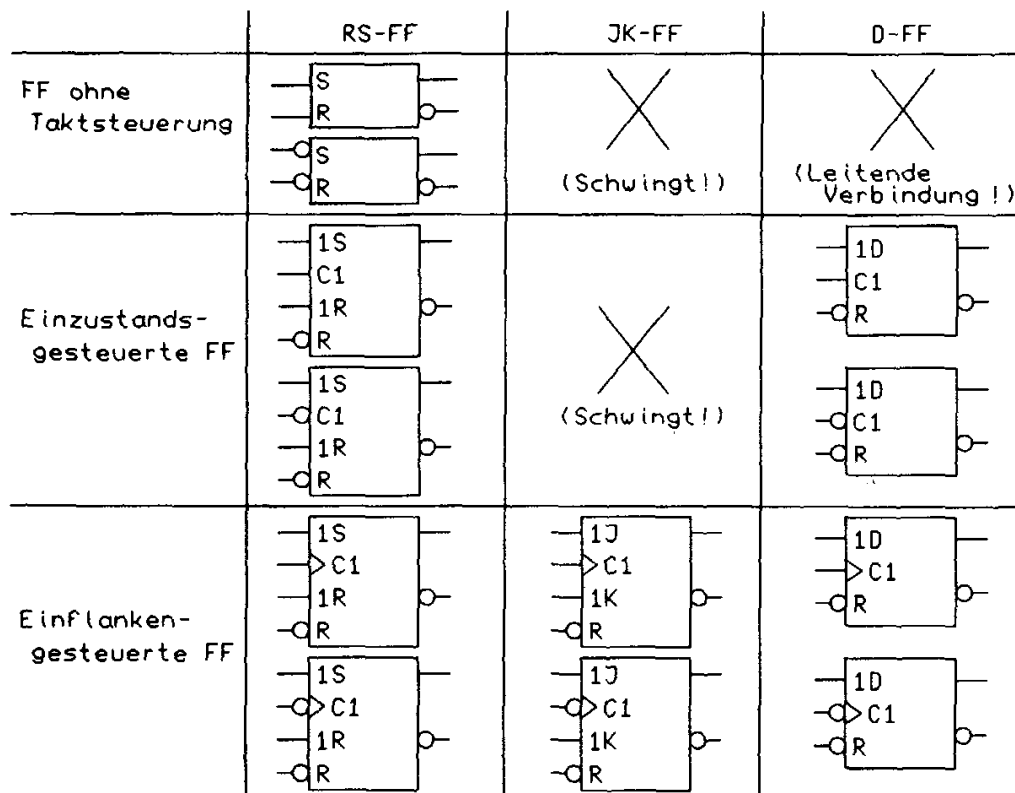 RS-FF
JK-FF
D-FF
FF ohne
Taktsteuerung
S
R
S
R
(Schwingt!)
(Leitende
Verbindung!)
Einzustands-
gesteuerte FF
1S
C1
1R
R
1S
C1
1R
R
(Schwingt!)
1D
C1
R
1D
C1
R
Einflanken-
gesteuerte FF
1S
C1
1R
R
1S
C1
1R
R
1J
C1
1K
R
1J
C1
1K
R
1D
C1
R
1D
C1
R